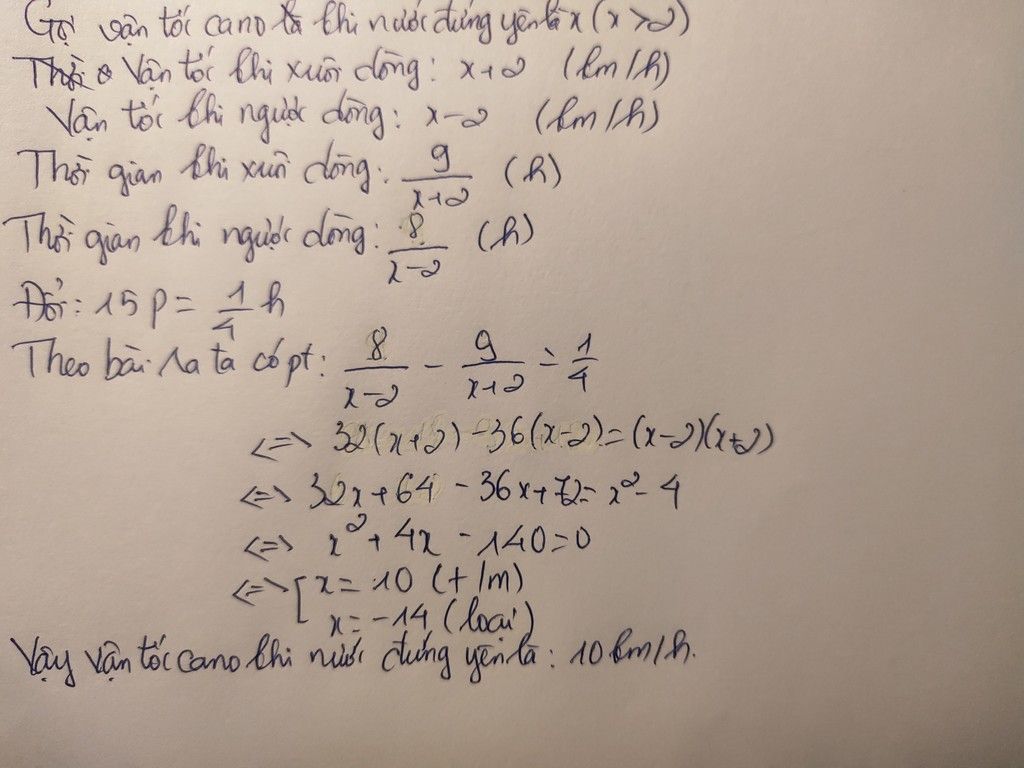 Gọi vận tốc cano là khi nước đứng yên là x (x > 2)
Thời Vận tốc khi xuôi dòng: x+2 (km/h)
Vận tốc khi ngược dòng: x-2 (km/h)
Thời gian khi xuôi dòng: 9/(x+2) (h)
Thời gian khi ngược dòng: 8/(x-2) (h)
Đổi: 15 p = 1/4 h
Theo bài ra ta có pt: 8/(x-2) - 9/(x+2) = 1/4
<=> 32(x+2) - 36(x-2) = (x-2)(x+2)
<=> 32x + 64 - 36x + 72 = x² - 4
<=> x² + 4x - 140 = 0
<=> [ x = 10 (t/m)
x = -14 (loại)
Vậy vận tốc cano khi nước đứng yên là: 10 km/h.